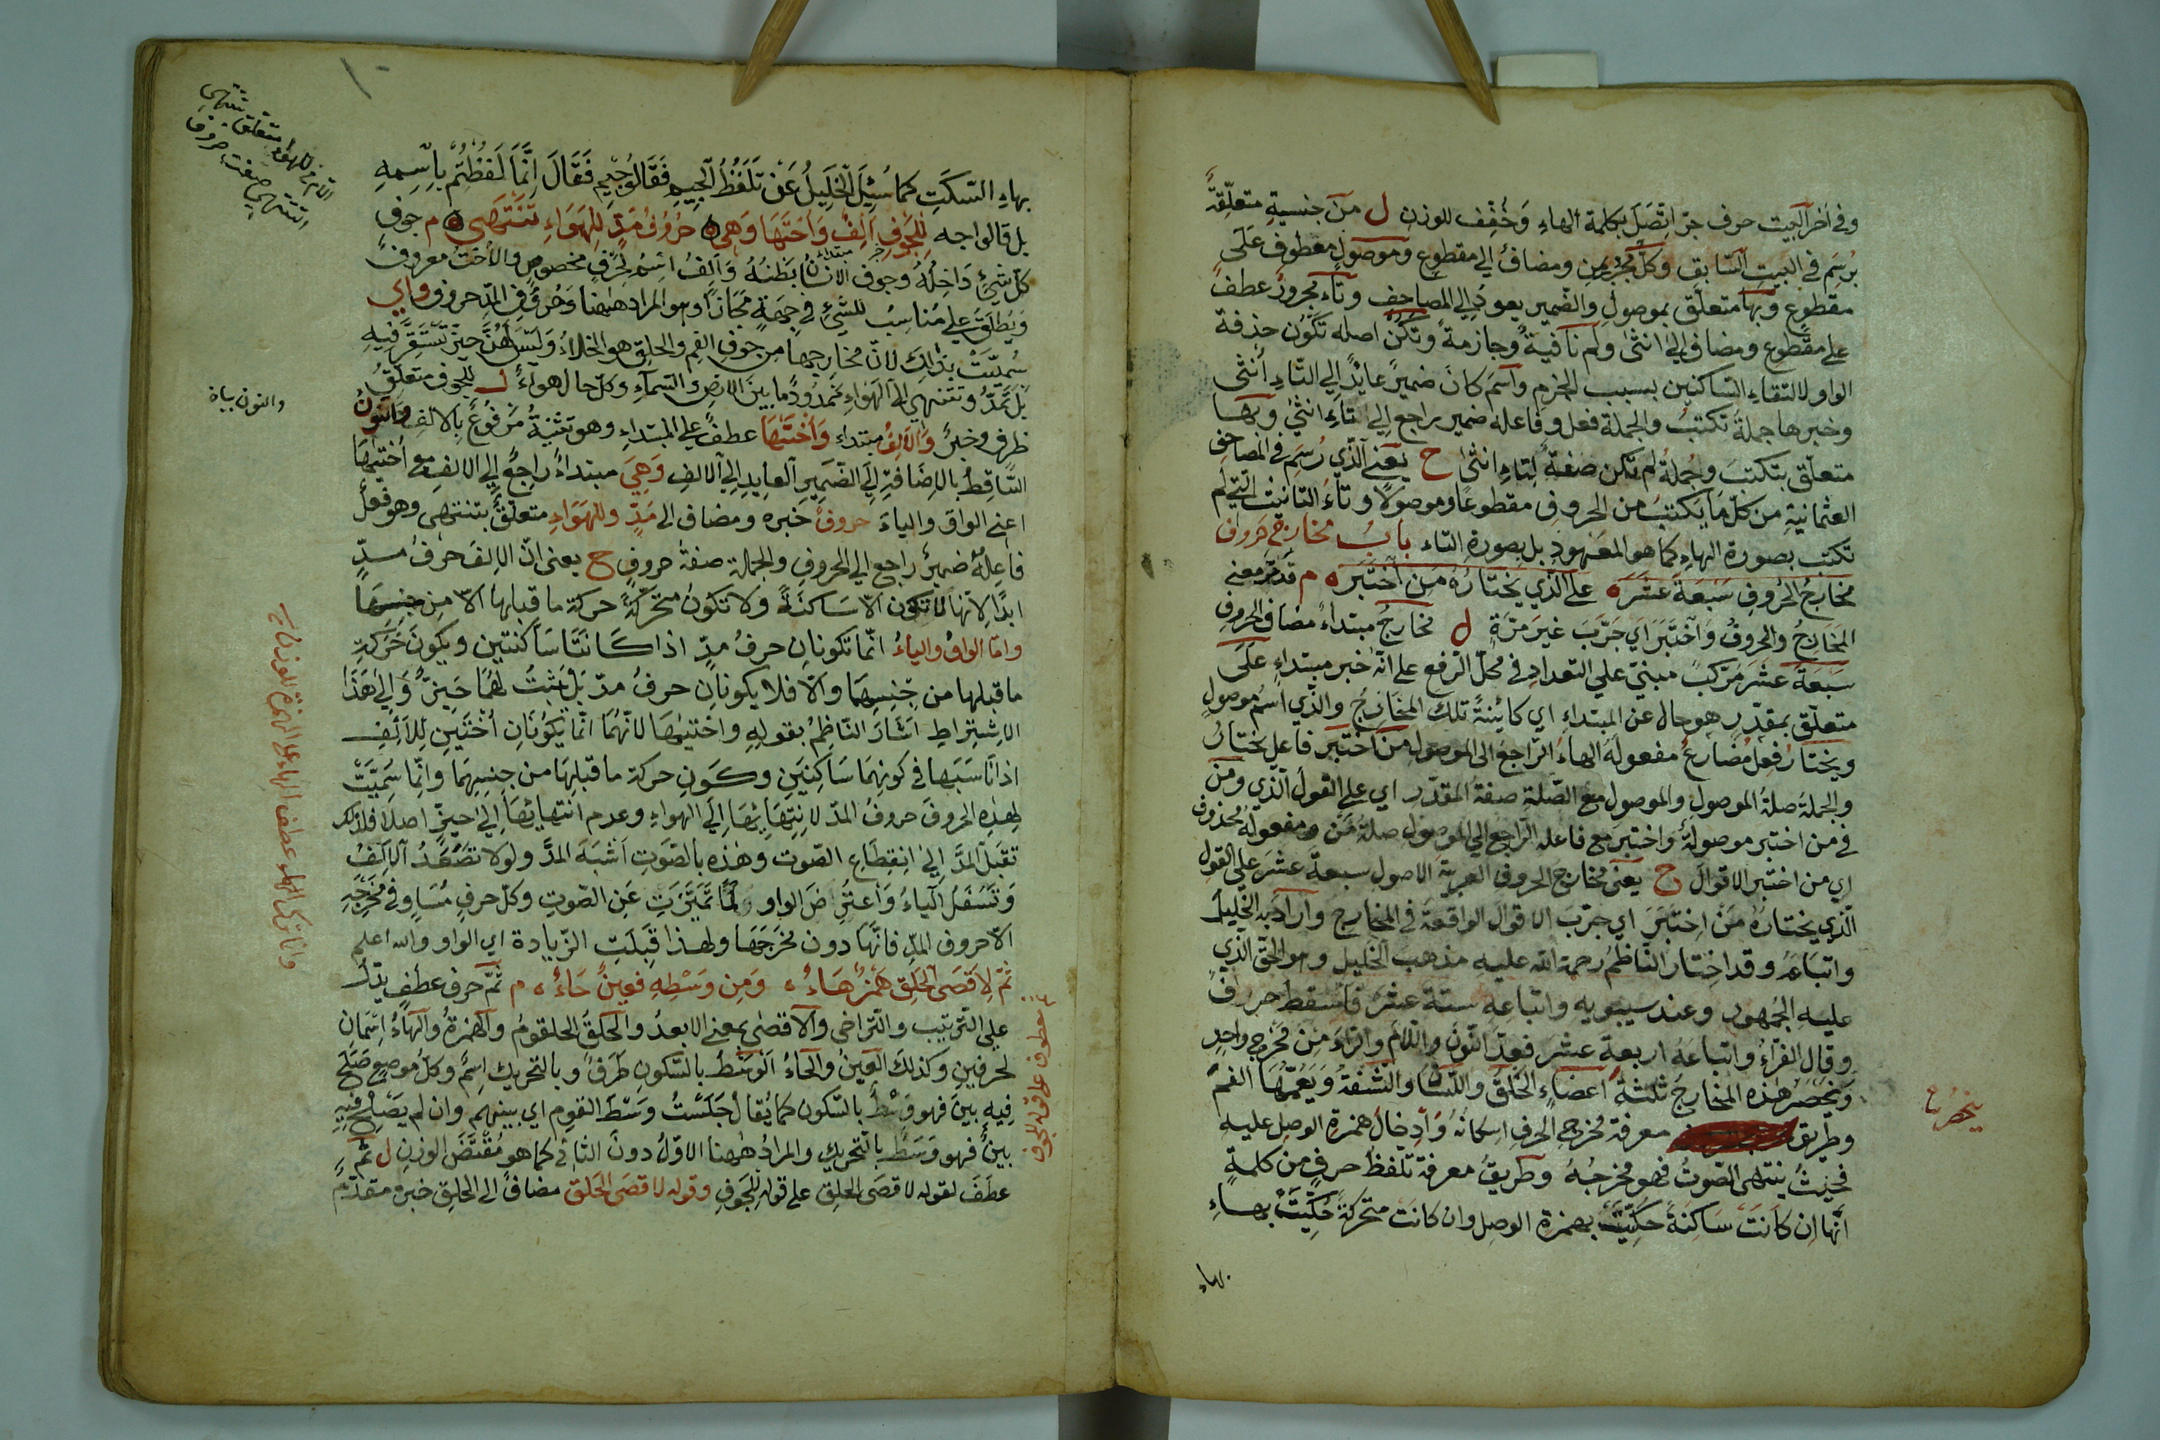 وفي آخر البيت حرف جرّ اتّصَلَ بكلمة الهاءِ وَخُفِّف للوزنِ ل من جنسيةٍ متعلّقةٌ
برُسِمَ في البيتِ السّابقِ وكلّ مجرورٌ بمِن ومضافٌ الى مقطوعٍ وموصولٍ معطوف عَلَى
مقطوعٍ وبِها متعلّق بموصولٍ والضّمير يعودُ الى المصاحِفِ وتاءِ مجرورٌ عطفٌ
على مقطوعٍ ومضافٌ الى انثى ولم نافيةٌ وجازمةٌ وتكن اصله تكونُ حذفة
الواو لالتقاءِ السّاكنين بسبب الجزمِ واسمَ كانَ ضميرٌ عايدٌ الى التّاءِ أُنثى
وخبرها جملةُ تكتبُ والجملة فعل وفاعله ضمير راجع الى تاءِ انثى وبها
متعلّق بتكتبَ وجُملةُ لم تكن صفةٌ لتاءِ انثى ح يعني الّذي رُسِمَ في المصاحفِ
العثمانيةِ من كلّ ما يكتبُ من الحروفِ مقطوعًا وموصولًا وتاءُ التأنيث التي لم
تكتب بصورة الهاءِ كما هو المعهودُ بل بصورة التاء بابُ مخارج حروف
مخارجُ الحروفِ سَبعَةَ عَشَرَه على الّذي يختارُهُ مَن اختَبَرَ ه م قدّمَ معنى
المخارجُ والحروفُ وَاختَبَرَ اي جَرّبَ غيرَ مَرّةٍ ل مخارجُ مبتداءٌ مضاف الحروفِ
سَبعةَ عشَرَ مُرَكّبٌ مبنيّ على التعدادِ في محلّ الرّفع على انّهُ خبر مبتداءِ عَلَى
متعلّق بمقدّرٍ هو حال عن المبتداءِ اي كائِنةً تلك المخارجُ والّذي اسمُ موصولٍ
ويختارُ فعلٌ مُضارعٌ مفعوله الهاءُ الرّاجعُ الى الموصولِ مَن اختَبَر فاعل يختارُ
والجملة صلةُ الموصولِ والموصول مع الصّلةِ صفةُ المقدّر اي على القول الّذي ومَن
في من اختبر موصولةٌ واختبرَ مع فاعله الرّاجع الى الموصولِ صلة مَن ومفعوله محذوفٌ
اي من اختبر الاقوالَ ح يعنى مخارج الحروف العربيةِ الاصول سبعةَ عشَرَ على القولِ
الّذي يختارُهُ مَن اختَبَرَ اي جرّبَ الاقوالَ الواقعةَ في المخارج وارادَ به الخليلَ
واتباعَهُ وقد اختارَ النّاظمُ رحمةُ الله عليه مذهبَ الخليلِ وهو الحقّ الّذي
عليه الجُمهور وعند سيبويه واتباعه ستة عشرَ فاَسقَط حروفَ
وقال الفرّاءُ واتباعهُ اربعةَ عشَرَ فعدّ النّونَ واللّام والرّاءَ مِن مخرجٍ واحدٍ
وينحَصِرُ هذه المخارجَ ثلثةُ اعضاءٍ الحَلقُ واللّسانُ والشّفةُ وَيَعُمّها الفمُ
وطريقُ معرفةِ مخرجِ الحرفِ اسكانهُ وَادخالُ همزةِ الوصلِ عليهِ
فحيثُ ينتهى الصّوتُ فهو مخرجُهُ وطريقُ معرفة تلفظُ حرفٍ من كلمةٍ
انّها ان كانَت ساكنةً حكيَت بهمزةِ الوصلِ وان كانَت متحركةً حكيَت بهاءِ
بهاء
ينحصر ح
بهاءِ السّكتِ كما سُئِلَ الخَليلُ عَن تَلفّظُ الجيمِ فقالُوا جيم فَقَالَ اِنّما لَفظتُم بِاسمِهِ
بل قالوا جه للجَوفِ الِفٌ وَاُختَهَا وَهِي ه حُرُوفُ مَدٍّ لِلهَوَاءِ تَنتَهي ه م جوف
كلّ شيئٍ دَاخِلُهُ وجوف الانسانُ بَطنُهُ وَالِفُ اسمٌ لحرفٍ مخصوصٍ والاُختُ معروفٌ
وَيُطلَق على مُناسِبُ للشّيئِ في جِهةٍ مَجازًا وهو المراد ههنا وحروفُ المدِّ حروف واي
سُمّيت بذلِكَ لانّ مخارجها من جوفِ الفمِ والحلقِ هو الخلاءُ وَليسَ لهُنّ حيّز تستقرّ فيه
بل تمدّ وتنتهي الى الهَواءِ ممدودٌ ما بينَ الارضِ والسّماءِ وكلّ خالٍ هواءٌ ل للجوف متعلّق
ظرف وخبرٌ والالِفُ مبتداء وَاُختَهَا عطفٌ على المبتداءِ وهو تثنيةٌ مرفوعٌ بالالفِ والنّونُ
السّاقِطُ بالاِضافةِ الى الضّميرِ العايدِ الى الالفِ وَهِيَ مبتداءٌ راجعٌ الى الالفِ مع اُختيها
اعني الواوَ والياءَ حروفُ خبره ومضاف الى مَدٍّ وللهَوَاءِ متعلّقٌ بتنتهى وهو فعلٌ
فاعلهُ ضميرٌ راجع الى الحروفِ والجملة صفةُ حروفٍ ح يعنى انّ الالِفَ حرفُ مدٍّ
ابدًا لانّها لا تكون الّا سَاكنةً ولا تكونُ متحرّكةً حركة ما قبلها الّا من جنسِها
وامّا الواوُ والياءُ انّما تكونان حرفُ مدٍّ اذا كانتا ساكنتين ويكونَ حَرَكةِ
ما قبلها من جِنسِهما والّا فلا يكونانِ حرفُ مدٍّ بل يثبتُ لهُما حيزٌ وَالى هذا
الاِشتِراطِ اشارَ النّاظِمُ بقولِهِ واختيها لانّهُما انّما يكونانِ اُختَينِ للاَلِفِ
اذا ناسَبَها في كونِهِما ساكِنَينِ وكَونِ حركة ما قبلها من جنسِهِما وانّما سُمّيَت
لهذِهِ الحروفَ حروفُ المدِّ لانتِهائِها اِلَى الهواءِ وعدم انتهائِها الى حيزٍ اصلًا فلذلكَ
تقبَل المدَّ اِلى انقِطاعِ الصّوتِ وهذه بالصّوتِ اَشبَهَ المدَّ ولولا تصَعّدُ الالِفُ
وَتسَفّلُ الياءُ وَاعتُرِضَ الواوِ لمّا تميّزت عَنِ الصّوتِ وكلّ حرفٍ مُسَاوٍ في مخرجِهِ
الّا حروف المدِّ فانّها دون مخرَجَها ولهذا قَبِلَت الزّيادة اي الواو والله اعلم
ثُمّ لِاَقصَى الحَلقِ هَمزٌ هَاءٌ ، وَمِن وَسطِهِ فعينٌ حَاءٌ ، م ثُمّ حرف عطفٍ يدلُّ
على التّرتيب والتّراخى والاقصٰى بمعنى الابعدُ والحَلقُ الحلقومُ والهمزةُ والهاءُ اِسمانِ
لحرفينِ وكذلك العَينُ والحَاءُ الوسطُ بالسّكون ظرفٌ وبالتحريك اسمٌ وكلّ موضعٍ صَلَحَ
فيهِ بينَ فهو وَسطٌ بالسّكون كما يُقالُ جَلستُ وَسْطَ القومِ اي بينهم وان لم يَصلح فيهِ
بينَ فهو وَسَطٌ بالتّحريكِ والمرادُ ههنا الاوّلُ دونَ الثاني كما هو مُقتضَى الوزنِ ل ثُمّ
عطَفَ لقوله لاقصَى الحلقِ على قوله للجَوفِ وقوله لاقصَى الحَلق مضافٌ الى الحلقِ خبره مقدّمٌ
والنون بياة
معطوف على قوله للجوف